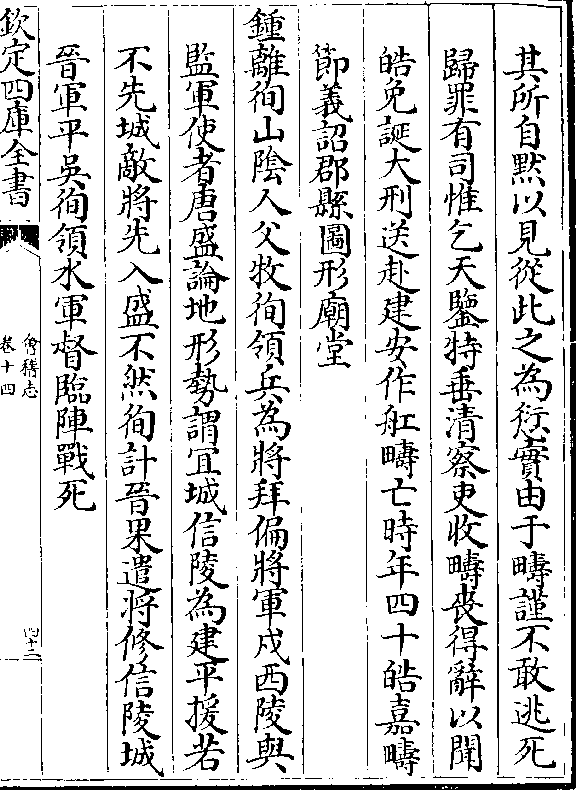 其所自黙以見從此之為愆實由于疇謹不敢逃死
歸罪有司惟乞天鑒特垂清察吏收疇喪得辭以聞
皓免誕大刑送赴建安作舡疇亡時年四十皓嘉疇
節義詔郡縣圖形廟堂
鍾離徇山陰人父牧徇領兵為將拜偏將軍戍西陵與
監軍使者唐盛論地形勢謂宜城信陵為建平援若
不先城敵將先入盛不然徇計晉果遣將修信陵城
晉軍平吳徇領水軍督臨陣戰死
欽定四庫全書
會稽志
卷十四
四十二